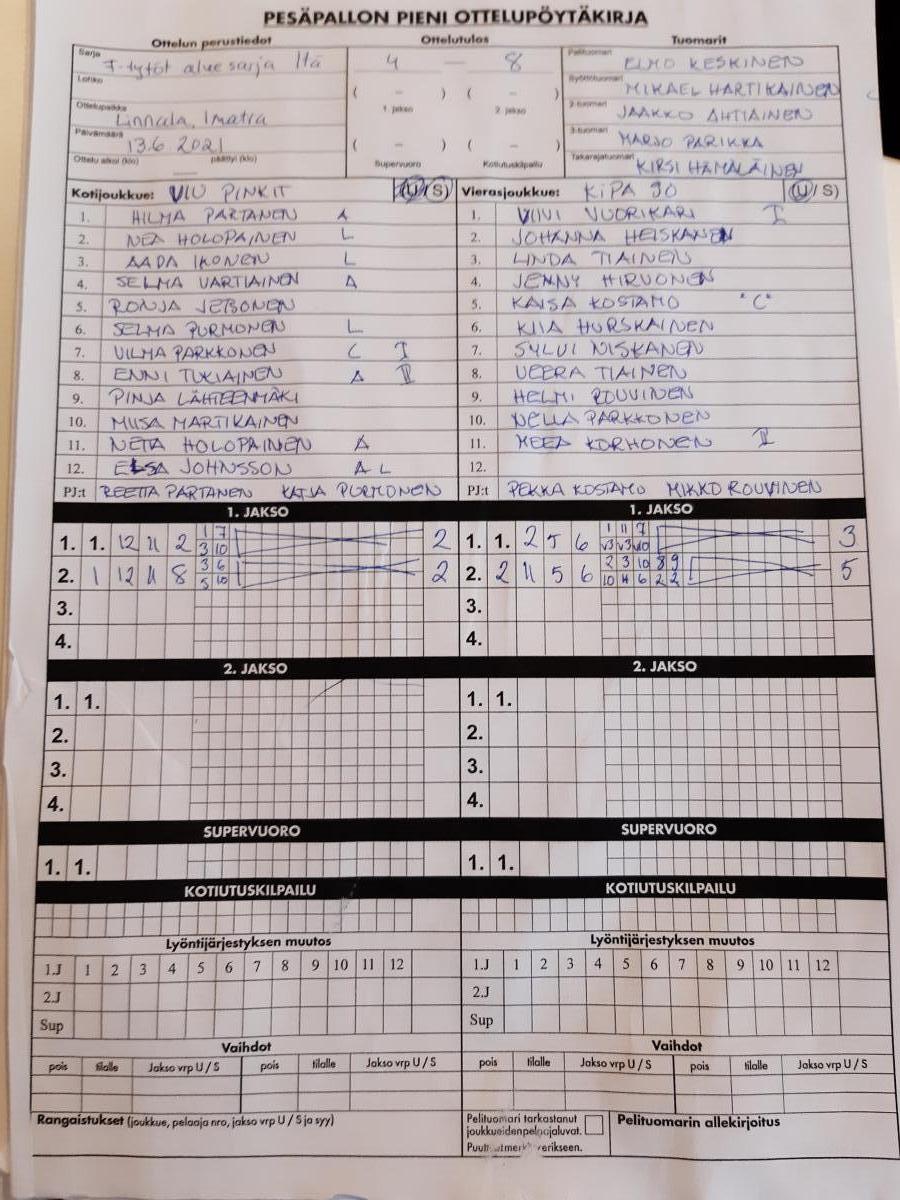 PESÄPALLON PIENI OTTELUPÖYTÄKIRJA
Ottelun perustiedot Ottelutulos Tuomarit
Sarja F-tytöt aluesarja Itä 4 – 8 Pelituomari ELMO KESKINEN
Lohko ( – ) ( – ) Syöttötuomari MIKAEL HARTIKAINEN
Ottelupaikka Linnala, Imatra 1. jakso 2. jakso 2-tuomari JAAKKO AHTIAINEN
Päivämäärä 13.6.2021 ( – ) ( – ) 3-tuomari MARJO PARIKKA
Ottelu alkoi (klo) päättyi (klo) Supervuoro Kotiutuskilpailu Takarajatuomari KIRSI HÄMÄLÄINEN
Kotijoukkue: VIU PINKIT (U/S) Vierasjoukkue: KiPA 90 (U/S)
1. HILMA PARTANEN A 1. VIIVI VUORIKARI I
2. NEA HOLOPAINEN L 2. JOHANNA HEISKANEN
3. AADA IKONEN L 3. LINDA TIAINEN
4. SELMA VARTIAINEN A 4. JENNY HIRVONEN
5. RONJA 5. KAISA KOSTAMO "C"
6. SELMA PURMONEN L 6. KIIA HURSKAINEN
7. VILMA PARKKONEN C I 7. SYLVI NISKANEN
8. ENNI TUKIAINEN A II 8. VEERA TIAINEN
9. PINJA LÄHTEENMÄKI 9. HELMI ROUVINEN
10. MUSA MARTIKAINEN 10. NELLA PARKKONEN
11. NETA HOLOPAINEN A 11. MEEA KORHONEN II
12. ELSA JOHNSSON A L 12.
PJ:t REETTA PARTANEN KATJA PURMONEN PJ:t PEKKA KOSTAMO MIKKO ROUVINEN
1. JAKSO 1. JAKSO
1. 1. 12 11 2 1 7 2 1. 1. 2 5 6 1 11 7 3
3 10 v3 v3 v10
2. 1 12 11 8 3 6 2 2. 2 11 5 6 2 3 10 8 9 5
5 10 10 4 6 2 2
3. 3.
4. 4.
2. JAKSO 2. JAKSO
1. 1. 1. 1.
2. 2.
3. 3.
4. 4.
SUPERVUORO SUPERVUORO
1. 1. 1. 1.
KOTIUTUSKILPAILU KOTIUTUSKILPAILU
Lyöntijärjestyksen muutos Lyöntijärjestyksen muutos
1.J 1 2 3 4 5 6 7 8 9 10 11 12 1.J 1 2 3 4 5 6 7 8 9 10 11 12
2.J 2.J
Sup Sup
Vaihdot Vaihdot
pois tilalle Jakso vrp U / S pois tilalle Jakso vrp U / S pois tilalle Jakso vrp U / S pois tilalle Jakso vrp U / S
Rangaistukset (joukkue, pelaaja nro, jakso vrp U / S ja syy) Pelituomari tarkastanut Pelituomarin allekirjoitus
joukkueiden pelaajaluvat.